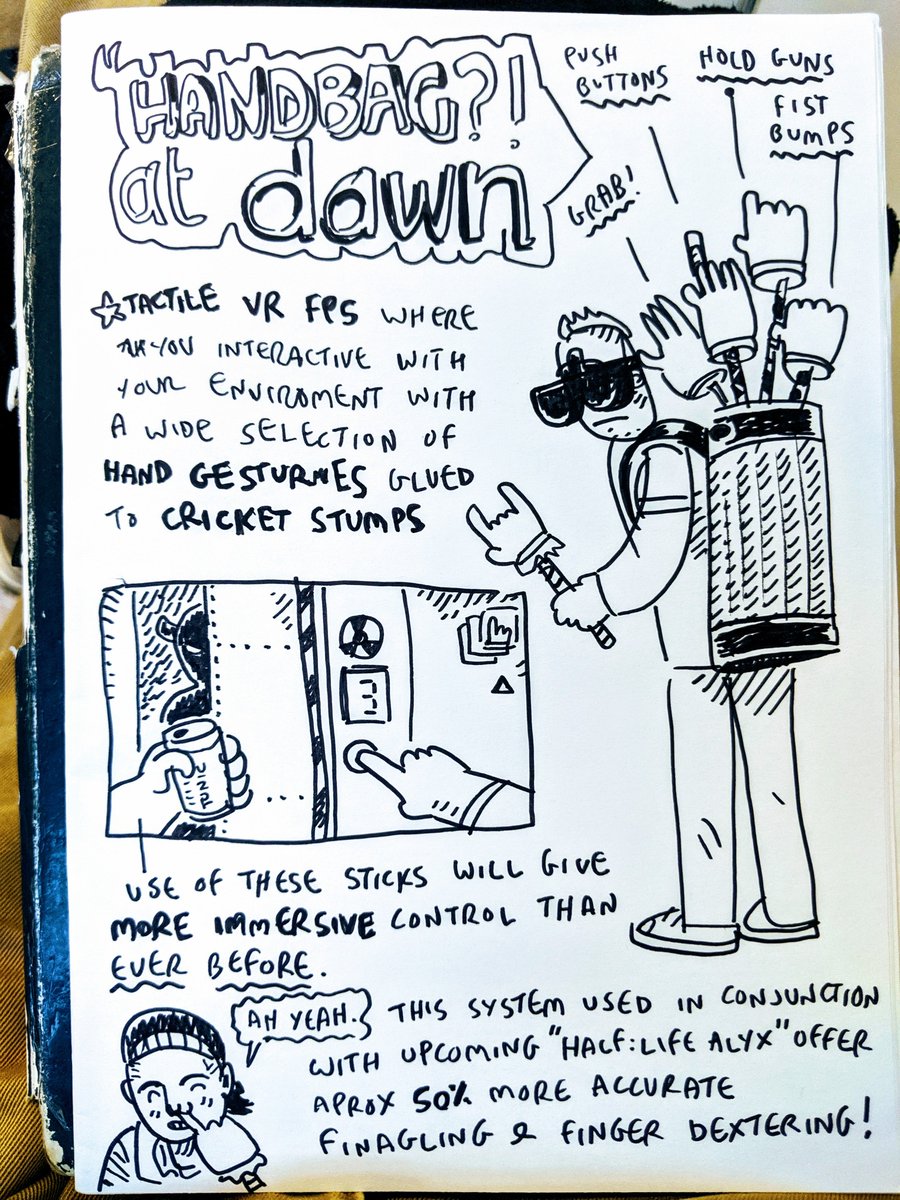 "HANDBAG?!
at dawn
PUSH
BUTTONS
HOLD GUNS
FIST
BUMPS
GRAB!
☆TACTILE VR FPS WHERE
YOU INTERACTIVE WITH
YOUR ENVIROMENT WITH
A WIDE SELECTION OF
HAND GESTURES GLUED
TO CRICKET STUMPS
USE OF THESE STICKS WILL GIVE
MORE IMMERSIVE CONTROL THAN
EVER BEFORE.
AH YEAH.
THIS SYSTEM USED IN CONJUNCTION
WITH UPCOMING "HALF:LIFE ALYX" OFFER
APROX 50% MORE ACCURATE
FINAGLING & FINGER DEXTERING!